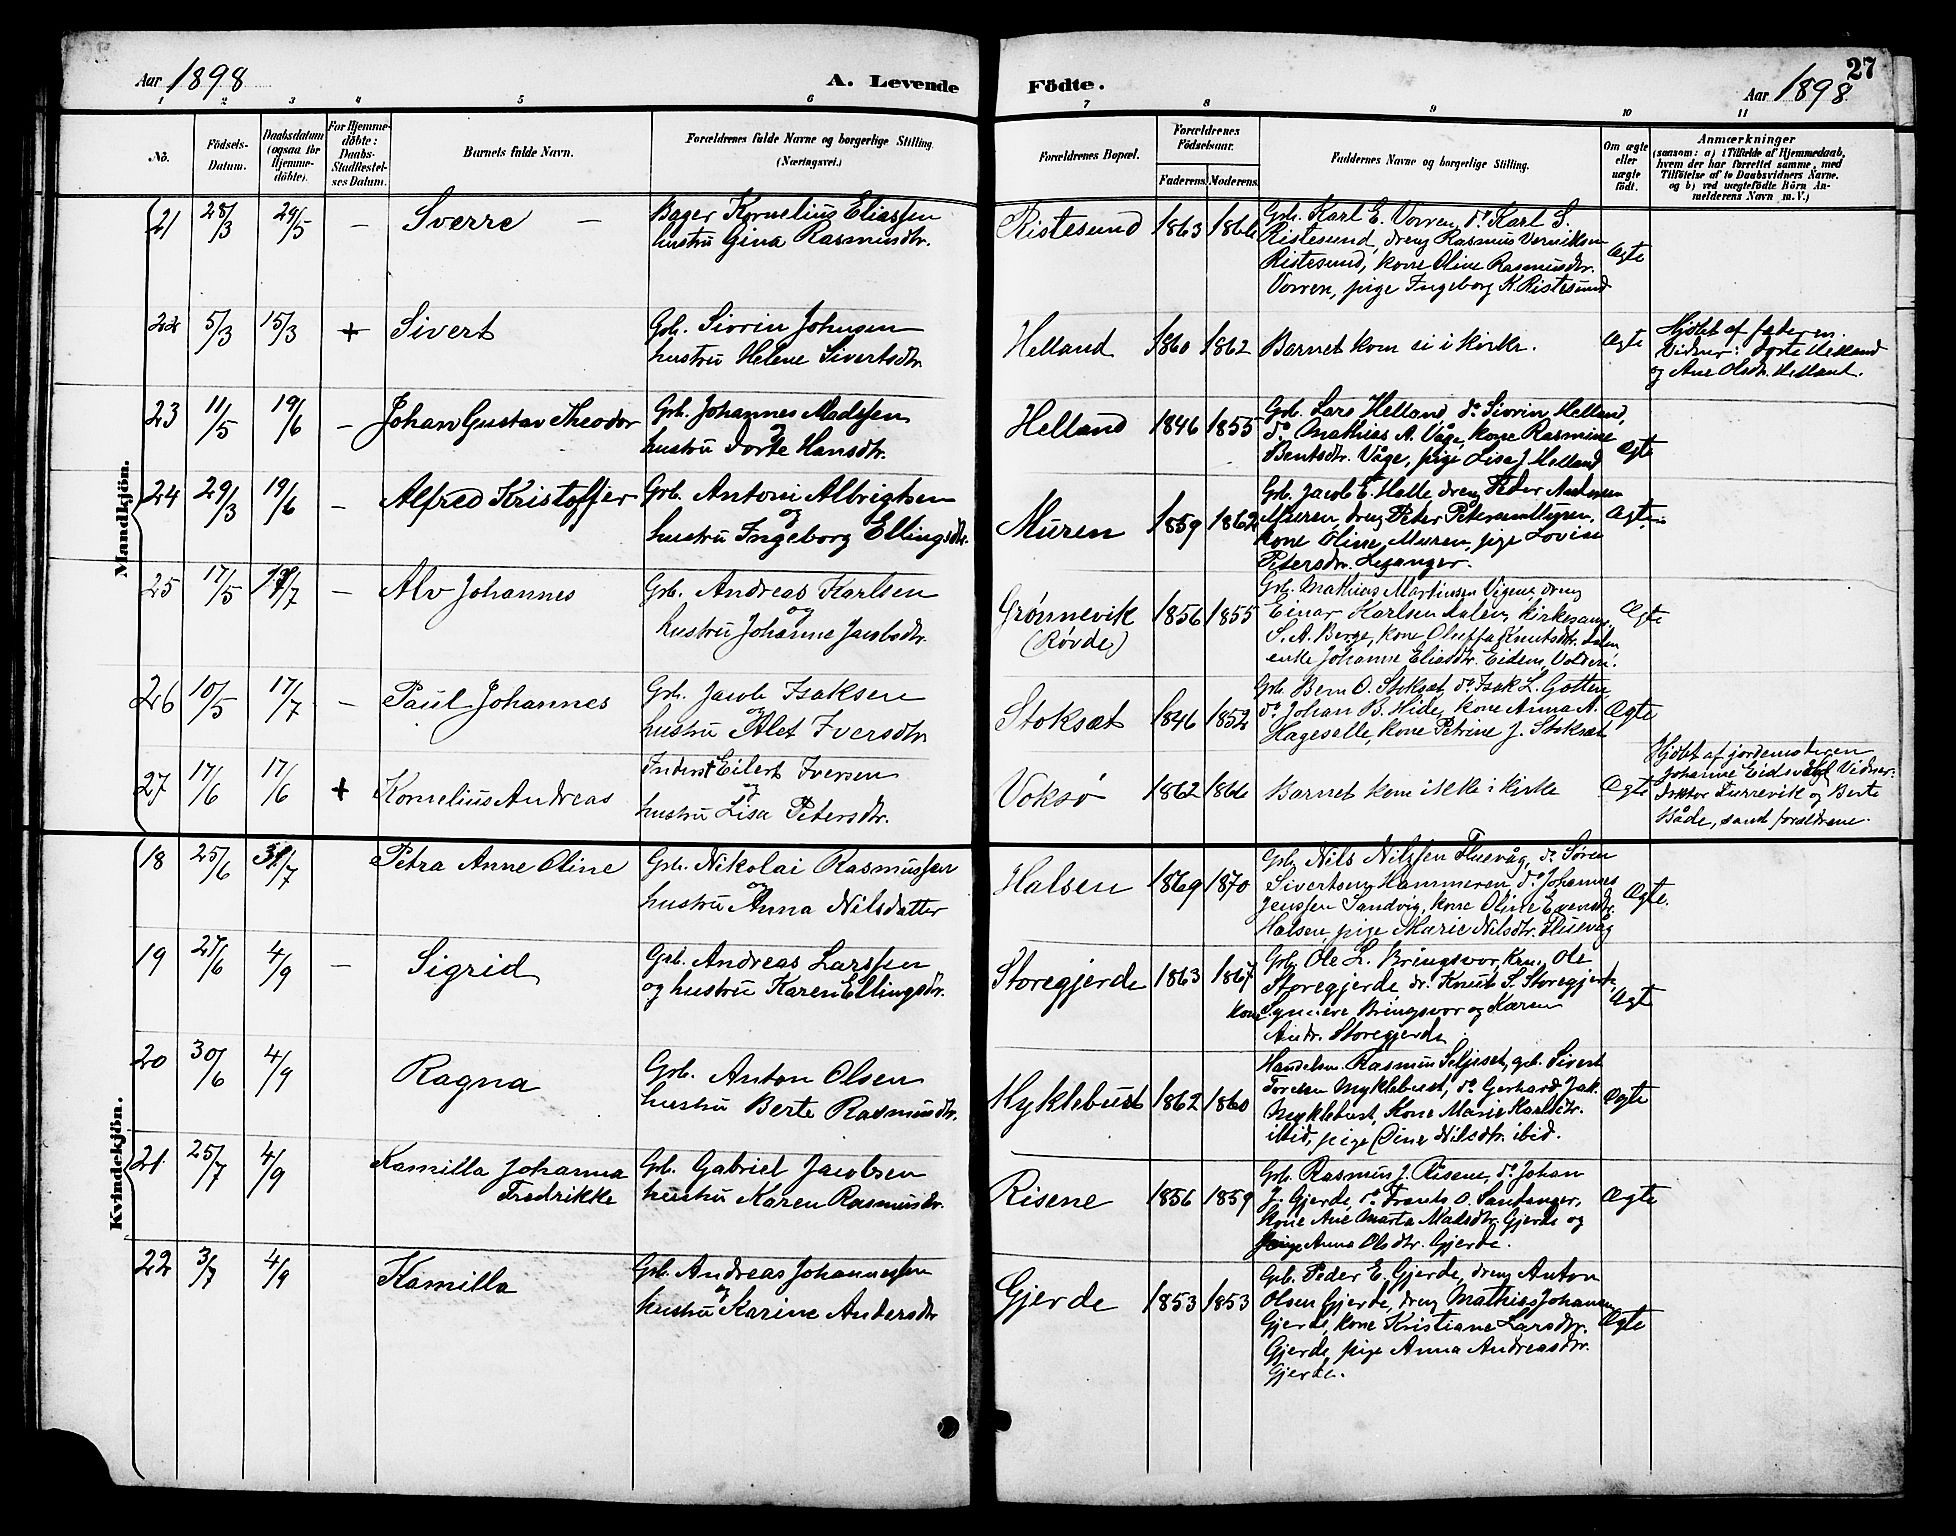 27
Aar 1898
A. Levende
Födte.
Aar 1898
1 2 3 4 5 6 7 8 9 10 11
No.
Födsels-
Datum.
Daabsdatum
(ogsaa for
Hjemme-
döbte).
For Hjemme-
döbte:
Daabs-
Stadfæstel-
ses Datum.
Barnets fulde Navn.
Forældrenes fulde Navne og borgerlige Stilling.
(Næringsvei.)
Forældrenes Bopæl.
Forældrenes
Födselsaar.
Faderens.
Moderens.
Faddernes Navne og borgerlige Stilling.
Om ægte
eller
uægte
födt.
Anmærkninger
(saasom: a) i Tilfælde af Hjemmedaab,
hvem der har forrettet samme, med
Tilföielse af to Daabsvidners Navne.
og b) ved uægtefödte Börn An-
melderens Navn m. V.)
Mandkjön.
21 28/3 29/5 – Sverre –
Bager Kornelius Eliassen
hustru Gina Rasmusdtr.
Ristesund 1863 1866
Grb. Karl E. Vorren, do Karl S.
Ristesund, dreng Rasmus Verniksen
Ristesund, kone Oline Rasmusdtr.
Vorren, pige Ingeborg K. Ristesund
Ægte
22 5/3 15/3 + Sivert
Grb. Sivrin Johnsen
hustru Helene Sivertsdtr.
Helland 1860 1862 Barnet kom ei i kirke. Ægte
Hjdbt af faderen.
Vidner: Dorte Helland
og Ane Olsdtr. Helland.
23 11/5 19/6 – Johan Gustav Theodor
Grb. Johannes Madssen
og
hustru Dorte Hansdtr.
Helland 1846 1855
Grb. Lars Helland, do Sivrin Helland,
do Mathias A. Våge, kone Rasmine
Bentsdtr. Våge, pige Lisa J Helland
Ægte
24 29/3 19/6 – Alfred Kristoffer
Grb. Antoni Albrigtsen
og
hustru Ingeborg Ellingsdtr.
Muren 1859 1862
Grb. Jacob E. Halle, dreng Peder Andersen
Muren, dreng Peter Petersen Myren,
kone Oline Muren, pige Lovise
Petersdtr. Leganger.
Ægte
25 17/5 17/7 – Alv Johannes
Grb. Andreas Karlsen
og
hustru Johanne Jacobsdtr.
Grønnevik
(Røvde)
1856 1855
Grb. Mathias Martinusen Vigene, dreng
Einar Karlsen Dalen, kirkesang.
S. A. Berge, kone Oluffa Knutsdtr. Dalen
enke Johanne Eliasdtr. Eidem, Volden.
Ægte
26 10/5 17/7 – Paul Johannes
Grb. Jacob Isaksen
og
hustru Alet Iversdtr.
Stoksæt 1846 1852
Grb. Bern O. Stoksæt, do Isak L. Gotten
do Johan B. Hide, kone Anna A.
Hageselle, kone Petrine J. Stoksæt
Ægte
27 17/6 17/6 + Kornelius Andreas
Inderst Eilert Iversen
og
hustru Lisa Petersdtr.
Voksø 1862 1866 Barnet kom ikke i kirke Ægte
Hjdbt af jordemoderen
Johanne Eidsvåg Vidner:
Doktor Furrevik og Berte
Både, samt forældrene.
Kvindekjön.
18 25/6 31/7 Petra Anne Oline
Grb. Nikolai Rasmussen
og
hustru Anna Nilsdatter
Halsen 1869 1870
Grb. Nils Nilssen Fluevåg, do Søren
Sivertsen Hammeren, do Johannes
Jenssen Sandvig, kone Oline Evensdtr.
Halsen, pige Marie Nilsdtr. Fluevåg
Ægte.
19 27/6 4/9 – Sigrid
Grb. Andreas Larssen
og hustru Karen Ellingsdtr.
Storegjerde 1863 1867
Grb. Ole L. Bringsvor, Ole
Storegjerde, do. Knut S. Storegjerde,
kone Synneve Bringsvor og Karen
Andr. Storegjerde
Ægte
20 30/6 4/9 Ragna
Grb. Anton Olsen
hustru Berte Rasmusdtr.
Myklebust 1862 1860
Handelsm. Rasmus Seljeset, grb. Sivert
Toresen Myklebust, do Gerhard Jak.
Myklebust, Kone Marie Karlsdtr.
ibid, pige Oine Nilsdtr. ibid.
Ægte
21 25/7 4/9 Kamilla Johanna
Fredrikke
Grb. Gabriel Jacobsen
hustru Karen Rasmusdtr.
Risene 1856 1859
Grb. Rasmus J. Risene, do Johan
J. Gjerde, do Frants O. Sandanger,
Kone Ane Marta Madsdtr. Gjerde og
pige Anna Olsdtr. Gjerde.
Ægte
22 3/7 4/9 Kamilla
Grb. Andreas Johannessen
og
hustru Karine Andersdtr
Gjerde 1853 1853
Grb. Peder E. Gjerde, dreng Anton
Olsen Gjerde, dreng Mathias Johansen
Gjerde, kone Kristiane Larsdtr.
Gjerde, pige Anna Andreasdtr.
Gjerde.
Ægte